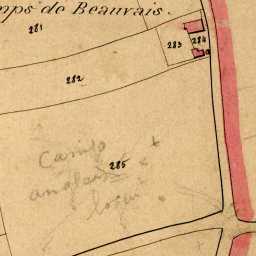 mps de Beauvais.
281
283
284
282
285
Camp
anglais